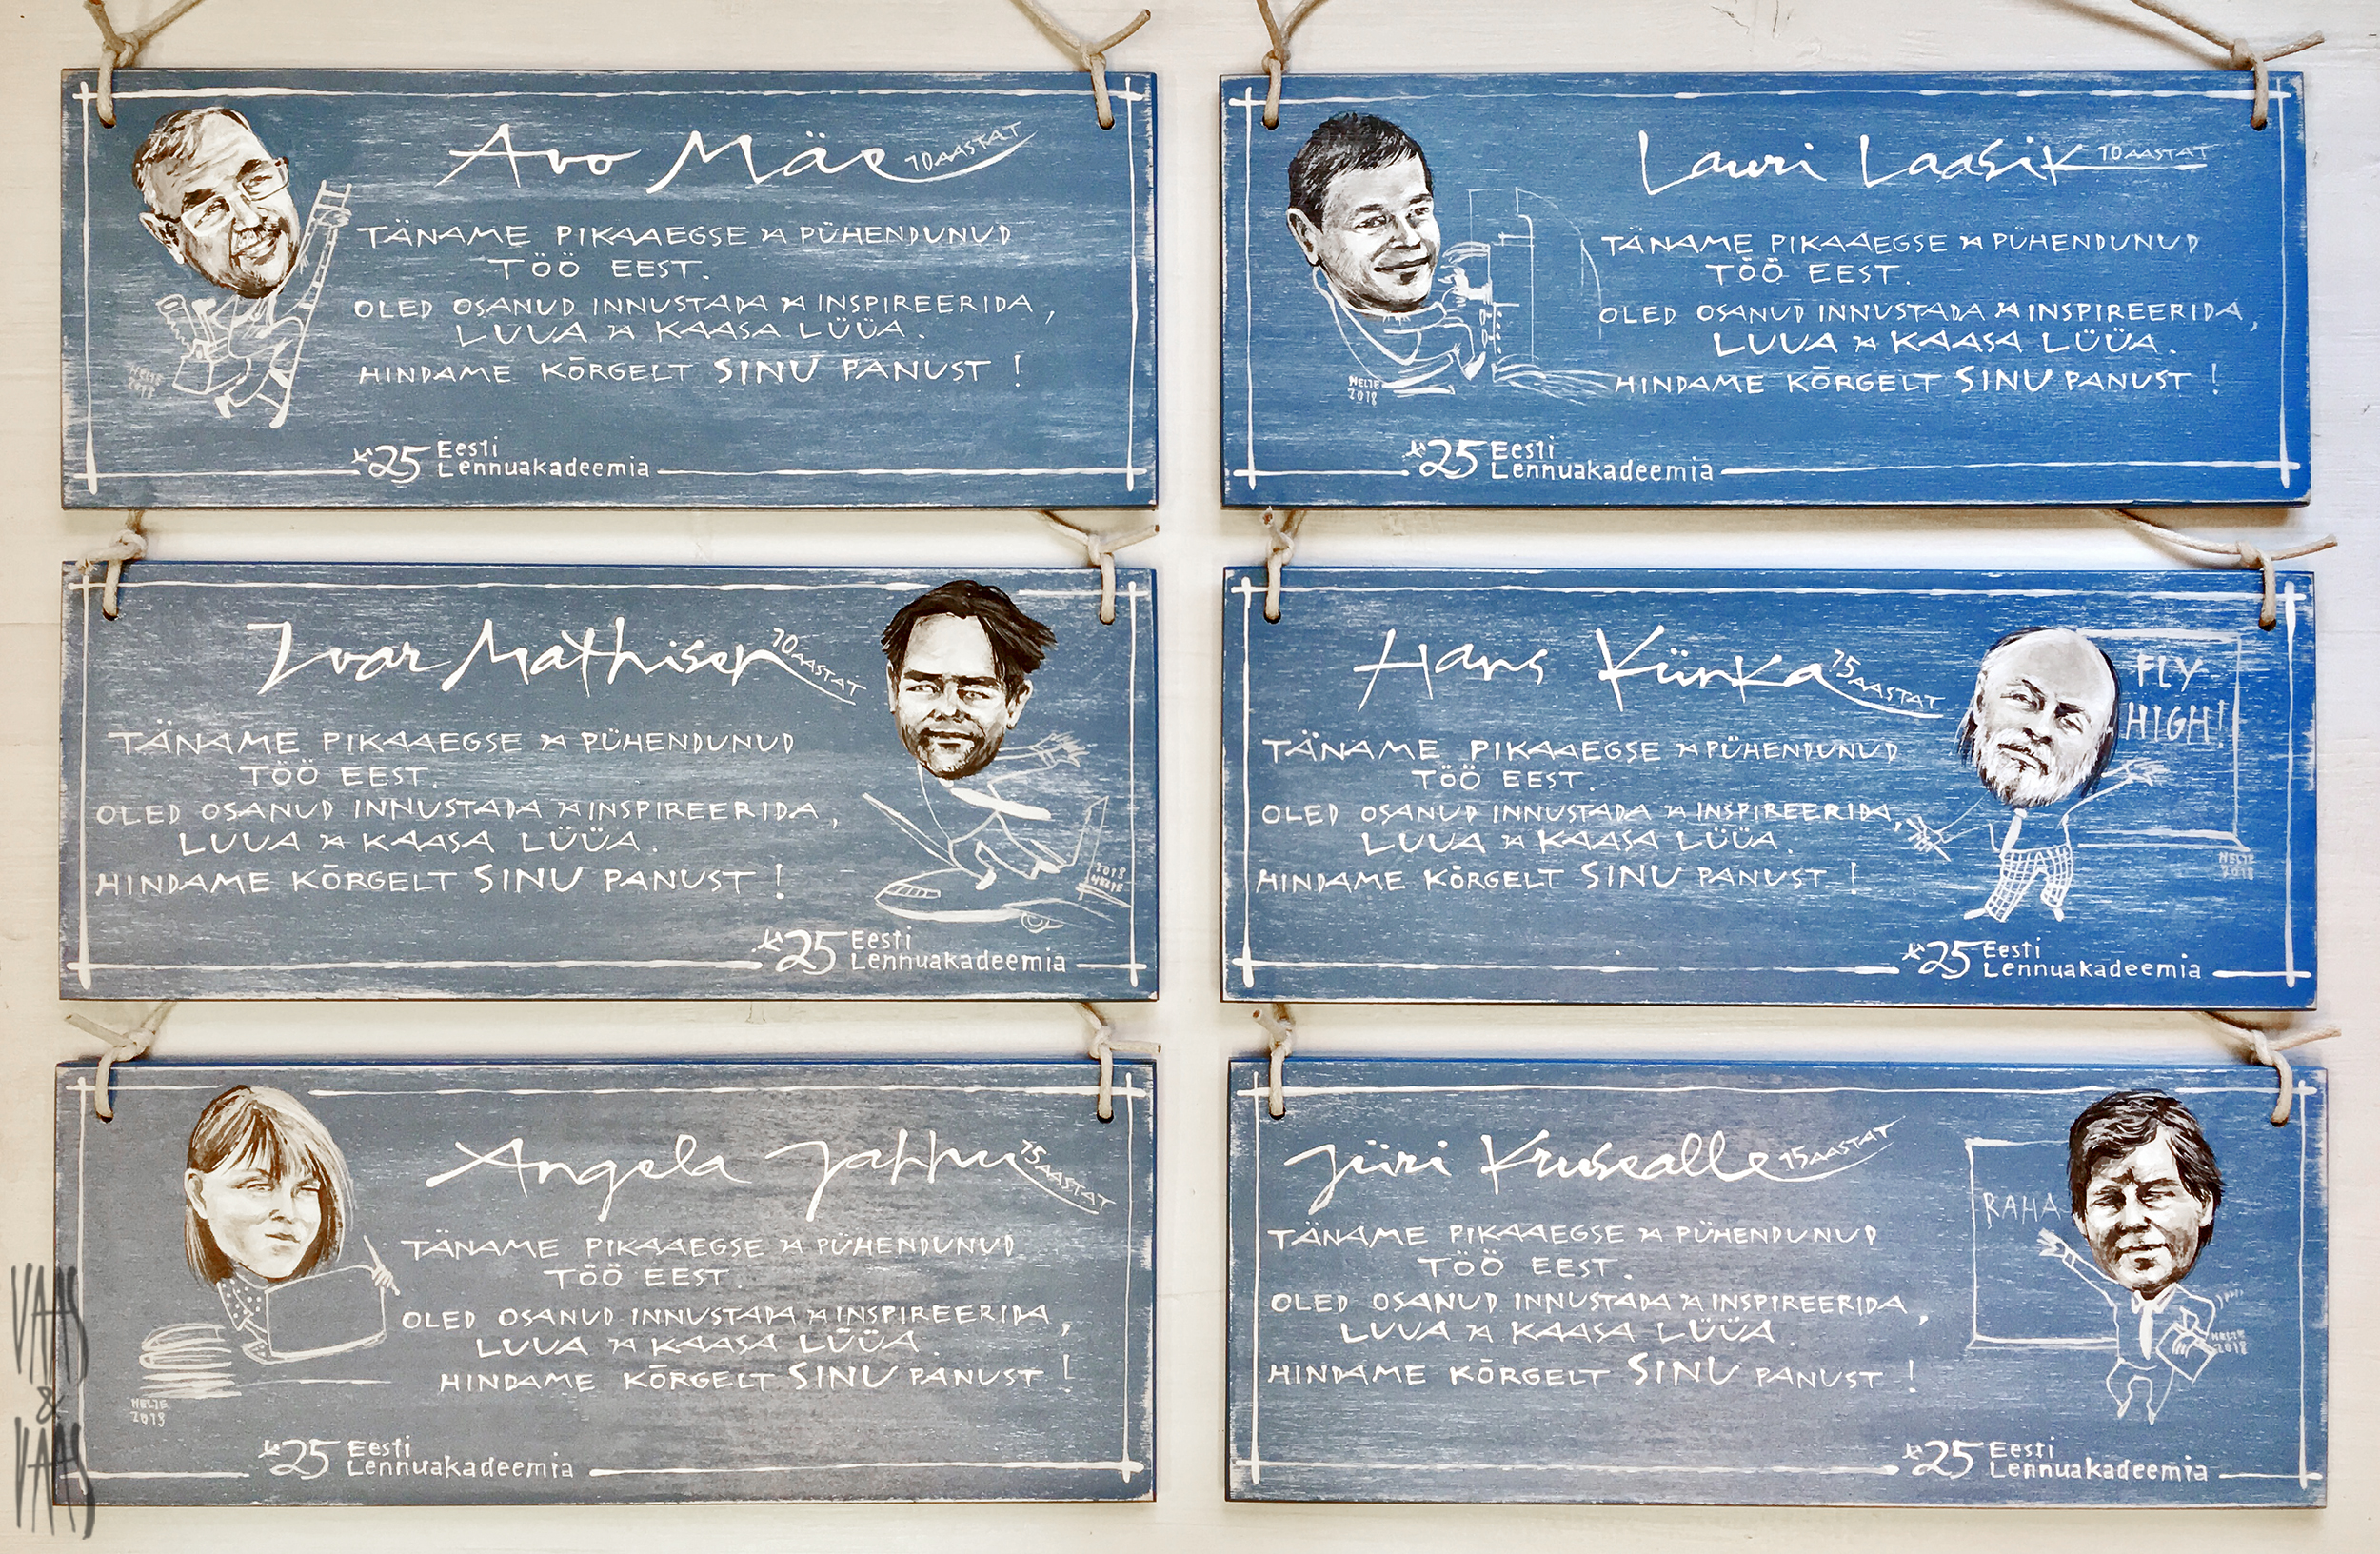 Avo Mäe 10 AASTAT
TÄNAME PIKAAEGSE JA PÜHENDUNUD
TÖÖ EEST.
OLED OSANUD INNUSTADA JA INSPIREERIDA,
LUUA JA KAASA LÜÜA.
HINDAME KÕRGELT SINU PANUST!
NELTE
2018
25 Eesti
Lennuakadeemia
Lauri Laasik 10 AASTAT
TÄNAME PIKAAEGSE JA PÜHENDUNUD
TÖÖ EEST.
OLED OSANUD INNUSTADA JA INSPIREERIDA,
LUUA JA KAASA LÜÜA.
HINDAME KÕRGELT SINU PANUST!
NELTE
2018
25 Eesti
Lennuakadeemia
Ivar Mathisen 10 AASTAT
TÄNAME PIKAAEGSE JA PÜHENDUNUD
TÖÖ EEST.
OLED OSANUD INNUSTADA JA INSPIREERIDA,
LUUA JA KAASA LÜÜA.
HINDAME KÕRGELT SINU PANUST!
2018
NELTE
25 Eesti
Lennuakadeemia
Hans Künka 15 AASTAT
FLY
HIGH!
TÄNAME PIKAAEGSE JA PÜHENDUNUD
TÖÖ EEST.
OLED OSANUD INNUSTADA JA INSPIREERIDA,
LUUA JA KAASA LÜÜA.
HINDAME KÕRGELT SINU PANUST!
NELTE
2018
25 Eesti
Lennuakadeemia
Angela Jahhu 15 AASTAT
TÄNAME PIKAAEGSE JA PÜHENDUNUD
TÖÖ EEST.
OLED OSANUD INNUSTADA JA INSPIREERIDA,
LUUA JA KAASA LÜÜA.
HINDAME KÕRGELT SINU PANUST!
NELTE
2018
25 Eesti
Lennuakadeemia
Jüri Krusealle 15 AASTAT
RAHA
TÄNAME PIKAAEGSE JA PÜHENDUNUD
TÖÖ EEST.
OLED OSANUD INNUSTADA JA INSPIREERIDA,
LUUA JA KAASA LÜÜA.
HINDAME KÕRGELT SINU PANUST!
NELTE
2018
25 Eesti
Lennuakadeemia
VAAS
&
VAAS